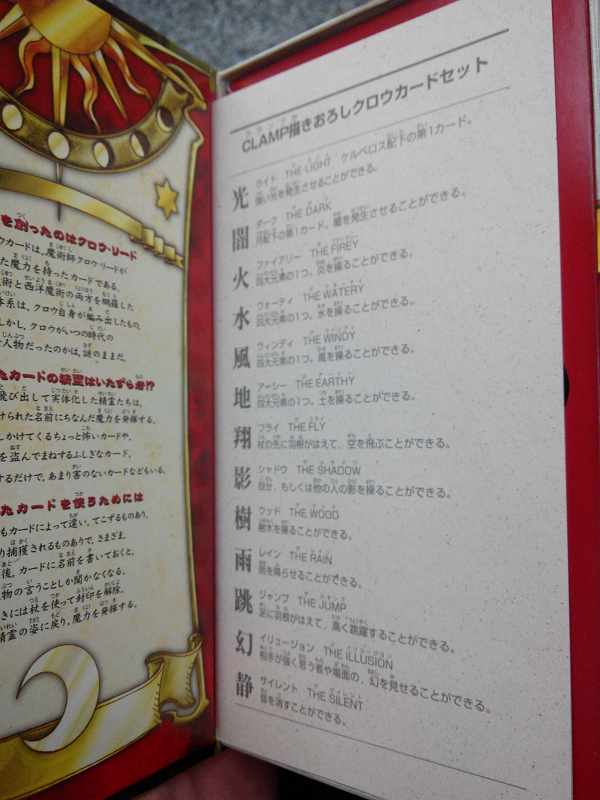 を創ったのはクロウ・リード
ウカードは、魔術師クロウ・リードが
た魔力を持ったカードである。
術と西洋魔術の両方を網羅した
体系は、クロウ自身が編み出したもの。
しかし、クロウがいつの時代の
人物だったのかは、謎のままだ。
たカードの精霊はいたずら者!?
飛び出して実体化した精霊たちは、
けられた名前にちなんだ魔力を発揮する。
しかけてくるちょっと怖いカードや、
を盗んでまねするふしぎなカード、
するだけで、あまり害のないカードなどもいる。
たカードを使うためには
もカードによって違い、てこずるものあり、
り捕獲されるものありで、さまざま。
後、カードに名前を書いておくと、
物の言うことしか聞かなくなる。
きには杖を使って封印を解除。
精霊の姿に戻り、魔力を発揮する。
CLAMP描きおろしクロウカードセット
光 ライト THE LIGHT ケルベロス配下の第1カード。
強い光を発生させることができる。
闇 ダーク THE DARK
月配下の第1カード。闇を発生させることができる。
火 ファイアリー THE FIREY
四大元素の1つ。炎を操ることができる。
水 ウォーティ THE WATERY
四大元素の1つ。水を操ることができる。
風 ウィンディ THE WINDY
四大元素の1つ。風を操ることができる。
地 アーシー THE EARTHY
四大元素の1つ。土を操ることができる。
翔 フライ THE FLY
杖の先に羽根がはえて、空を飛ぶことができる。
影 シャドウ THE SHADOW
自分、もしくは他の人の影を操ることができる。
樹 ウッド THE WOOD
樹木を操ることができる。
雨 レイン THE RAIN
雨を降らせることができる。
跳 ジャンプ THE JUMP
足に羽根がはえて、高く跳躍することができる。
幻 イリュージョン THE ILLUSION
相手が強く思う者や場面の、幻を見せることができる。
静 サイレント THE SILENT
音を消すことができる。